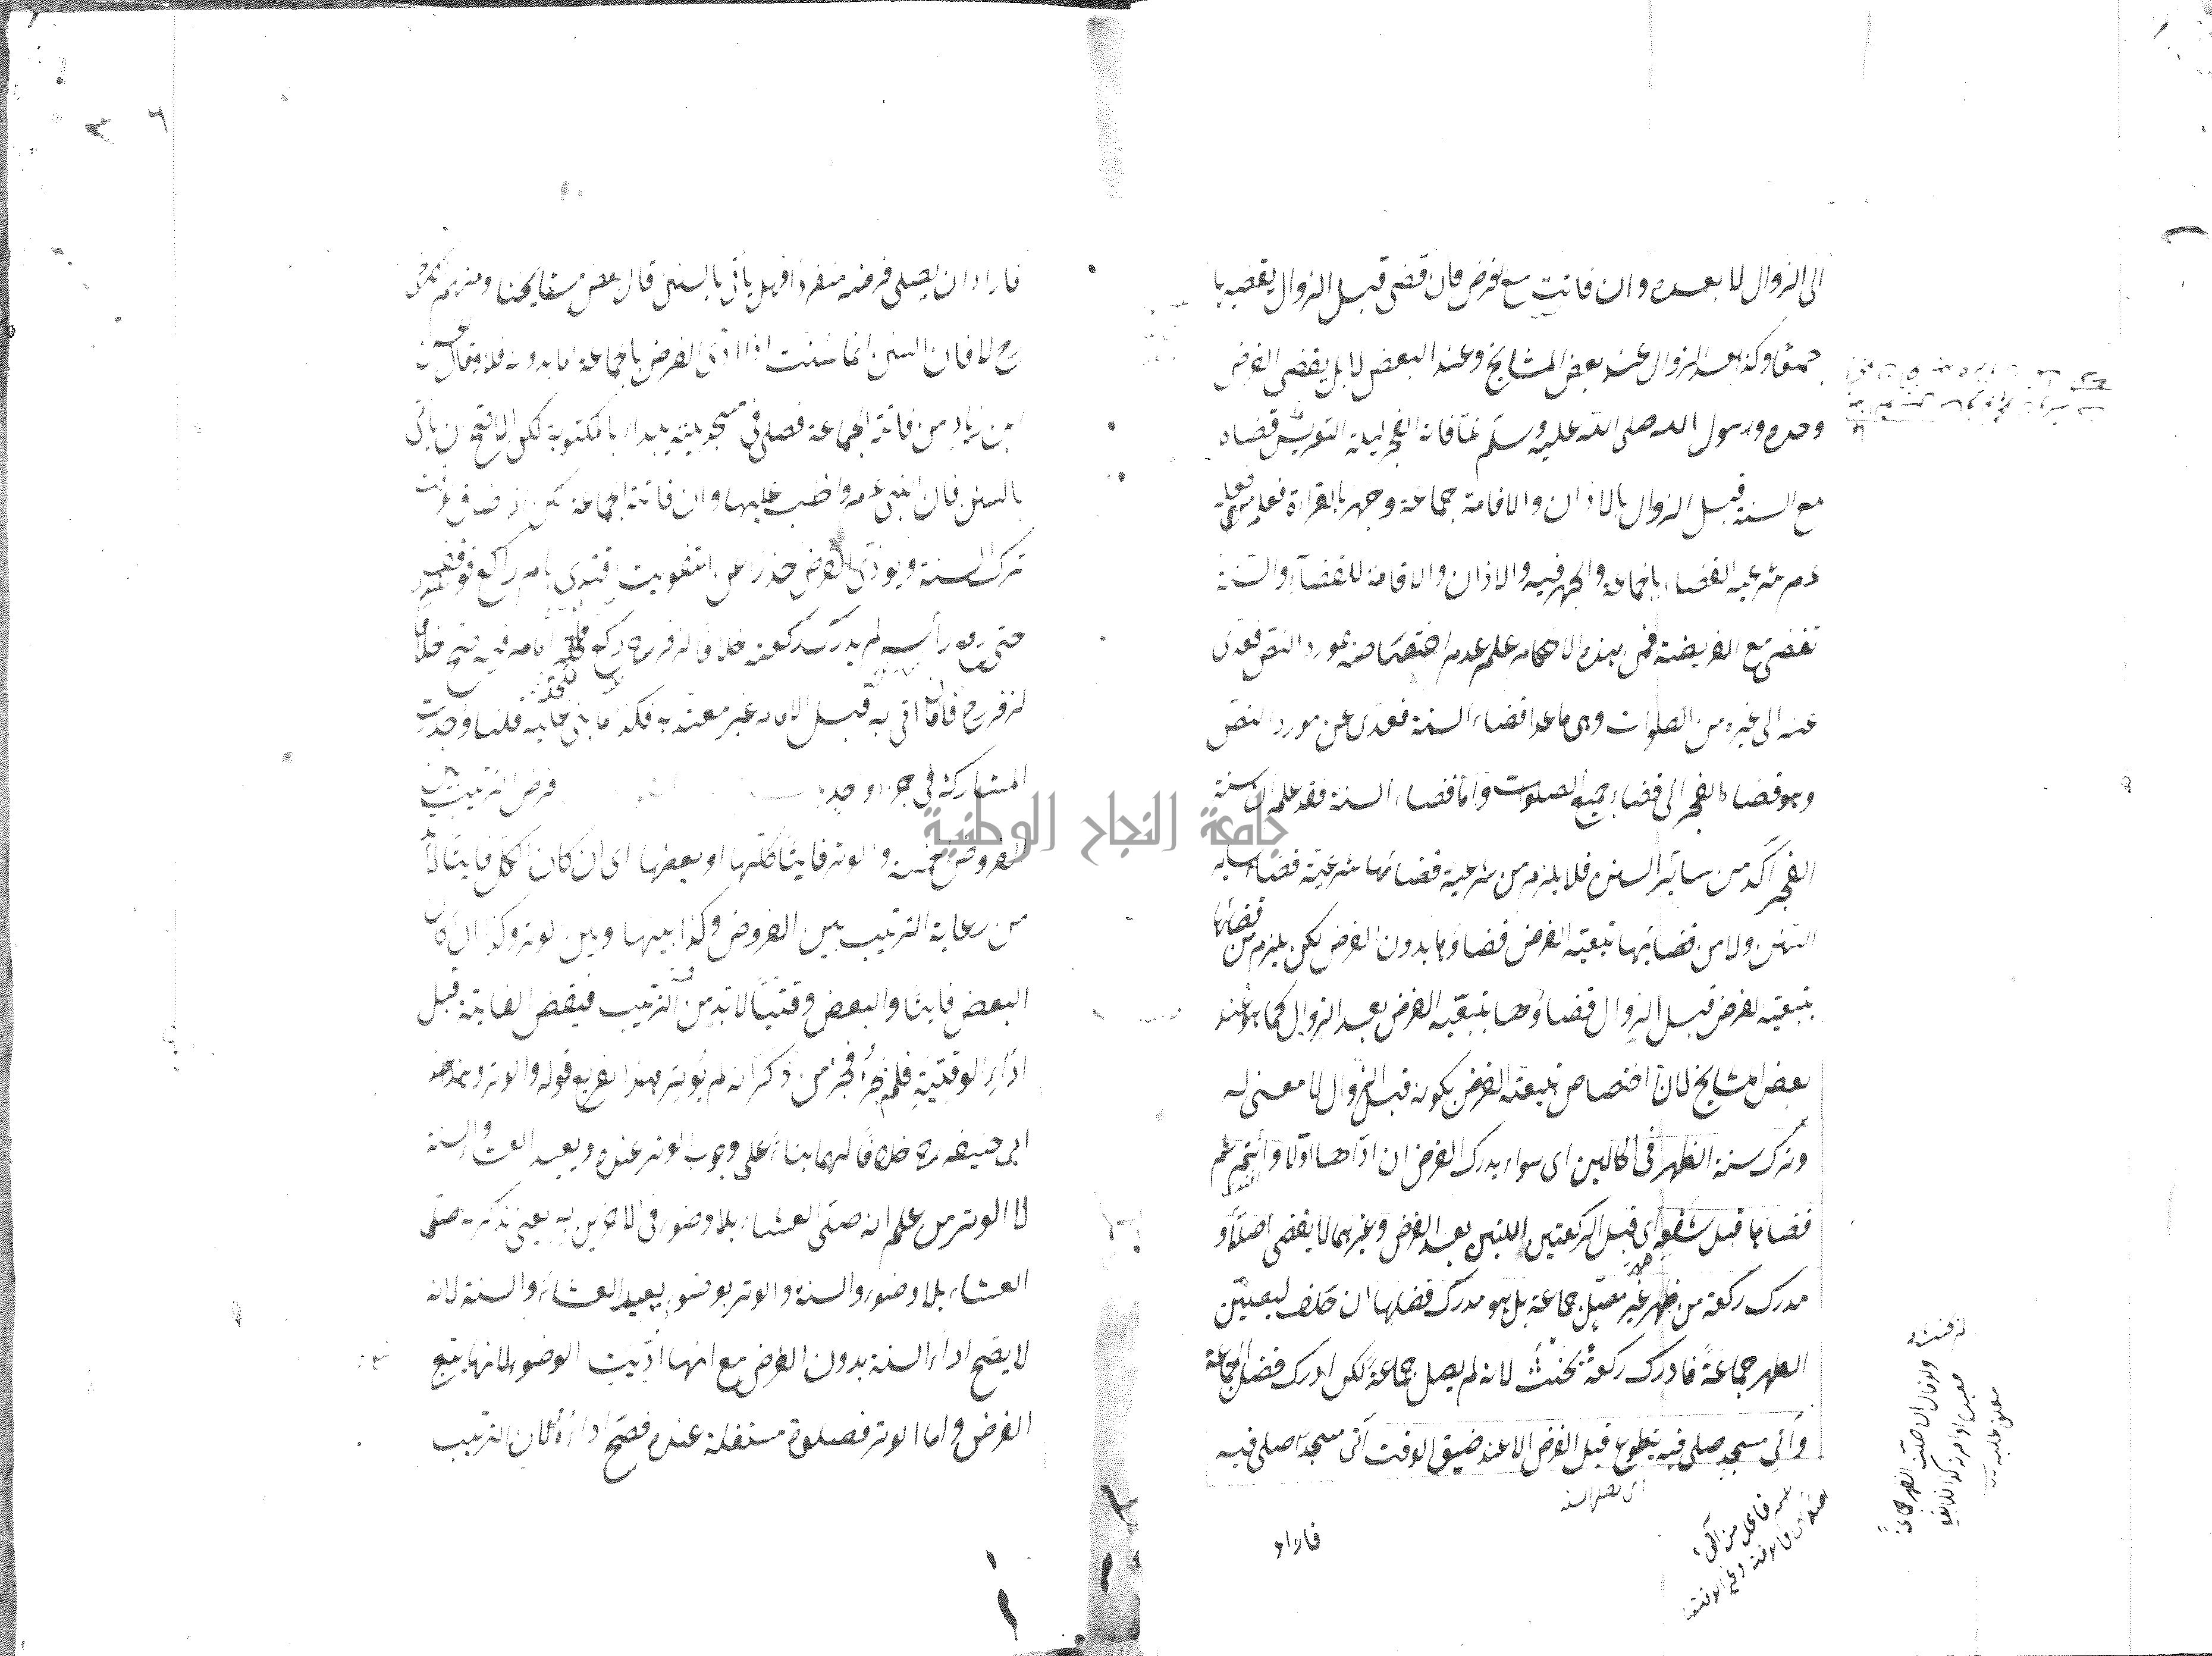 الى الزوال لا بعده وان فاتت مع الفرض فان قضى قبل الزوال يقضيها
جميعا وكذا بعد الزوال عند بعض المشايخ وعند البعض لا بل يقضى الفرض
وحده ورسول الله صلى الله عليه وسلم لما فاته الفجر ليلة التعريس قضاه
مع السنة قبل الزوال بالاذان والاقامة جماعة وجهر بالقراءة فعلم
شرعية القضاء بالجماعة والجهر فيه والاذان والاقامة للقضاء والسنة
تقضى مع الفريضة فمن هذه الاحكام علم عدم اختصاصه بمورد النص فعدى
عنه الى غيره من الصلوات وهى ما عدا قضاء السنة فعدى عن مورد النص
وهو قضاء الفجر الى قضاء جميع الصلوات واما قضاء السنة فقد علم ان سنة
الفجر آكد من سائر السنن فلا يلزم من شرعية قضائها شرعية قضاء سائر
السنن ولا من قضائها بتبعية الفرض قضاؤها بدون الفرض لكن يلزم من قضائها
بتبعية الفرض قبل الزوال قضاؤها بتبعية الفرض بعد الزوال كما هو عند
بعض المشايخ لان اختصاص تبعية الفرض بكونه قبل الزوال لا معنى له
وترك سنة الظهر فى الحالين اى سواء يدرك الفرض ان اداها اولا وائتم ثم
قضاها قبل شفعه اى قبل الركعتين اللتين بعد الفرض وغيرهما لا يقضى اصلا و
مدرك ركعة من ظهر غير مصل جماعة بل هو مدرك فضلها ان حلف ليصلين
الظهر جماعة فادرك ركعة يحنث لانه لم يصل جماعة لكن ادرك فضل الجماعة
وآتى مسجد صلى فيه يتطوع قبل الفرض الا عند ضيق الوقت آتى مسجدا صلى فيه
فاراد
فاراد ان يصلى فرضه منفردا فهل يأتى بالسنن قال بعض مشايخنا ومنهم
لا فان السنن انما سنت اذا ادى الفرض بالجماعة اما بدونه فلا وقال حسن
ابن زياد من فاتته الجماعة فصلى فى مسجد بيته يبدأ بالمكتوبة لكن الاصح ان يأتى
بالسنن فان النبى عم واظب عليها وان فاتته الجماعة لكن اذا ضاق الوقت
ترك السنة ويؤدى الفرض حذرا عن التفويت اقتدى بامام راكع فوقف
حتى رفع رأسه لم يدرك ركعته خلافا لزفر رح ركع فلحقه امامه فيه صح خلافا
لزفر رح فان ما اتى به قبل الامام غير معتد به فكذا ما بنى عليه قلنا وجدت
المشاركة فى جزء واحد فرض الترتيب بين
الفروض الخمسة والوتر فائتا كلها او بعضها اى ان كان الكل فائتا لابد
من رعاية الترتيب بين الفروض وكذا بينها وبين الوتر وكذا ان كان
البعض فائتا والبعض وقتيا لا بد من الترتيب فيقضى الفائتة قبل
اداء الوقتية فلم يجز فجر من ذكر انه لم يوتر هذا تفريع قوله والوتر وهذا عند
ابى حنيفة رح خلافا لهما بناء على وجوب الوتر عنده ويعيد العشاء والسنة
لا الوتر من علم انه صلى العشاء بلا وضوء والاخريين به يعنى تذكر انه صلى
العشاء بلا وضوء والسنة والوتر بوضوء يعيد العشاء والسنة لانه
لا يصح اداء السنة بدون الفرض مع انها اديت بالوضوء لانها تبع
الفرض واما الوتر فصلوة مستقلة عنده فصح اداؤه لان الترتيب
جامعة النجاح الوطنية